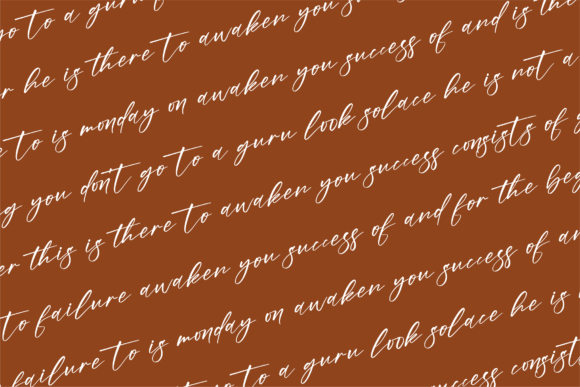 go to a guru
he is there to awaken you
to is monday on awaken you success of and is the
you don't go to a guru look solace he is not a
this is there to awaken you success consists of
to failure awaken you success of and for the
failure to is monday on awaken you success of
to a guru look solace he is
you success consists